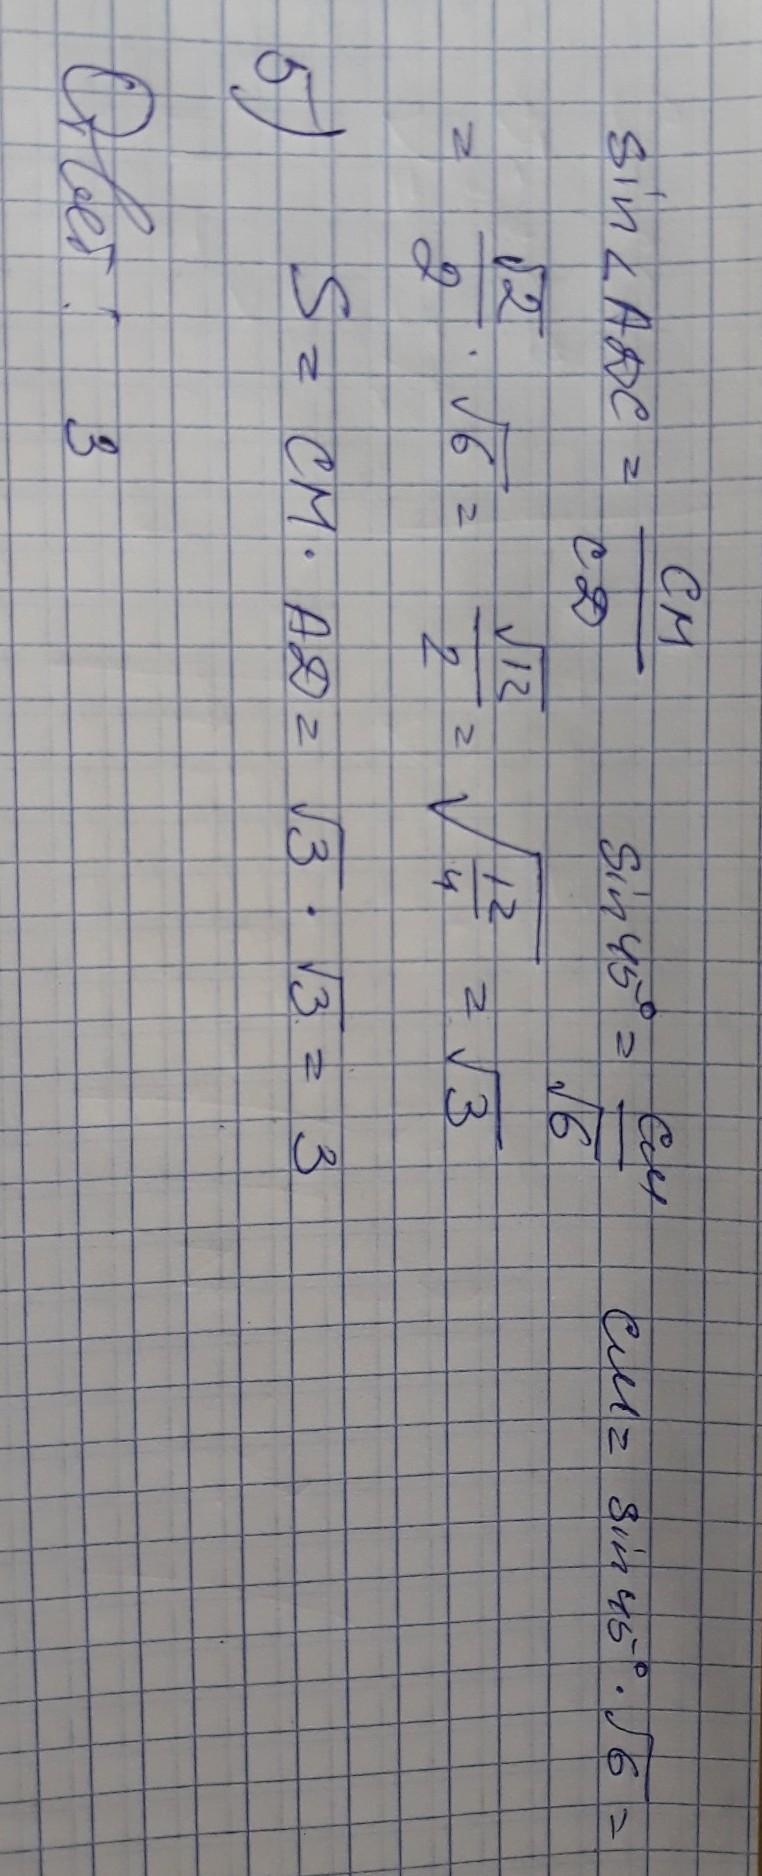 sin∠ADC = CM/CD   Sin45° = CM/√6   CM = sin45°·√6 =
= √2/2 · √6 = √12/2 = √(12/4) = √3
5) S = CM · AD = √3 · √3 = 3
Ответ: 3